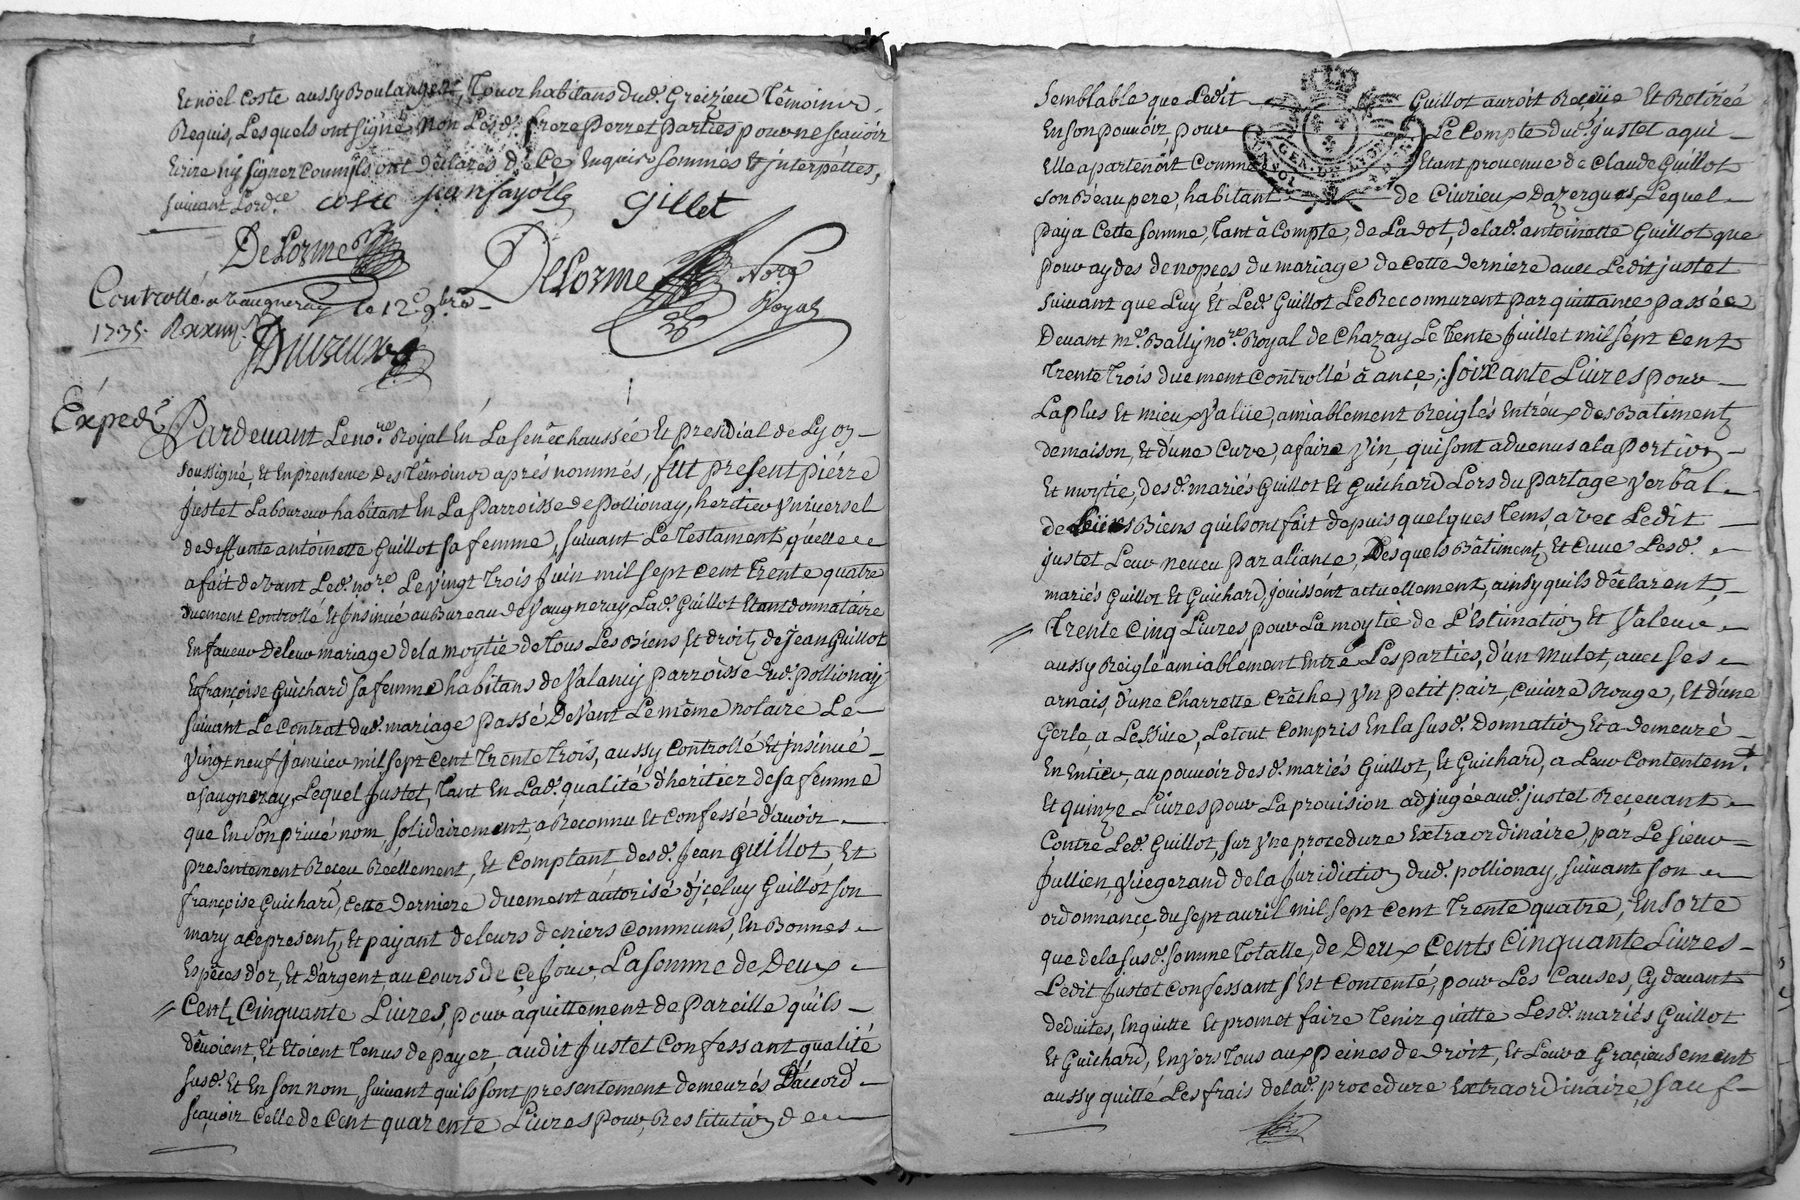 Et nöel Coste aussy Boulanger, Tous habitans dud. Greizieu Témoins
Requis, Lesquels ont signé, non Lesd. frere Perret parties pour ne sçauoir
Ecrire ny signer comm'ils ont déclarés de Ce Enquis sommés Et jnterpéllés,
suiuant Lord.ce coste jean fayolle gillet
DeLorme DeLorme No.re Royal
Controllé a Vaugneray le 12e 9bre
1735.
Expedé
Pardeuant Le no.re Royal En La senéchaussée Et presidial de Lyon
soussigné, et En presence Des Témoins aprés nommés, fut present piérre
Justet Laboureur habitant En La Parroisse de pollionay, heritier Vniuersel
de deffunte antoinette Guillot sa femme, suiuant Le Testament, qu'elle
a fait deuant Led. no.re Le Vingt Trois Juin mil sept cent Trente quatre
Duement Controllé Et jnsinué au Bureau de Vaugneray, Lad. Guillot Etant donnataire
En faueur de leur mariage de la moytié de Tous Les Biens Et droits de Jean Guillot
Et françoise Guichard sa femme habitans de Valency parroisse dud. pollionay
suiuant Le Contrat dud. mariage passé Devant Le même notaire Le
Vingt neuf Januier mil sept cent Trente Trois, aussy Controllé Et jnsinué
a Vaugneray, Lequel Justet, Tant En Lad. qualité d'heritier de sa femme
que En son priué nom solidairement, a Reconnu Et Confessé d'auoir
presentement Reçeu Réellement, Et Comptant, desd. Jean Guillot, Et
françoise Guichard, Cette Derniere duement autorisé d'jceluy Guillot son
mary a Ce presents, Et payant de leurs deniers communs, En Bonnes
Espéces d'or, Et D'argent, au Cours de Ce Jour, La somme de Deux
Cents Cinquante Liures, pour aquittement de Pareille qu'ils
dêuoient, Et Etoient Tenus de payer, audit Justet Confessant qualité
susd. Et En son nom, suiuant qu'ils sont presentement demeurés D'accord
sçauoir Celle de Cent quarente Liures pour Restitution de
semblable que Ledit Guillot auroit Reçüe Et Retirée
En son pouuoir, pour Le Compte dud. justet a qui
Elle apartenoit Comme Etant prouenue de Claude Guillot
son Beau pere, habitant de Ciurieux Dazergues, Lequel
paya Cette somme, Tant à Compte, de La dot, de lad. antoinette Guillot que
pour aydes de nopces du mariage de Cette derniere auec Ledit justet
suiuant que Luy Et Led. Guillot Le Reconnurent par quittance passée
Deuant m.e Bally no.re Royal de Chazay Le Trente Juillet mil sept cent
Trente Trois duement Controllé à ance; soixante Liures pour
La plus Et mieux Valüe, amiablement Reiglés Entr'eux des Batiments
de maison, Et d'une Cuve, a faire Vin, qui sont aduenus a la Portion
Et moytié, desd. mariés Guillot Et Guichard Lors du Partage Verbal
de Leurs Biens qu'ils ont fait depuis quelques Tems, avec Ledit
justet Leur neueu Par aliance, Desquels Bâtiments Et Cuue Lesd.
mariés Guillot Et Guichard, jouissent actuellement, ainsy qu'ils déclarent,
Trente Cinq Liures pour La moytié de L'Estimation Et Valeur
aussy Reiglé amiablement Entre Les parties, d'un Mulet, auec ses
arnais, d'une Charrette Crêche, Vn petit pair, Cuiure Rouge, Et d'une
Gerle, a Lessiue, Le tout Compris En la susd. Donnation Et a demeuré
En Entier, au pouuoir desd. mariés Guillot, Et Guichard, a Leur Contentem.t
Et quinze Liures pour La prouision adjugée aud. justet Reçeuant
Contre Led. Guillot, sur Vne procedure Extraordinaire, par Le sieur
Jullien, Viegerand de la Juridiction dud. pollionay, suiuant son
ordonnance, du sept auril mil sept cent Trente quatre, Ensorte
que de la susd. somme Totalle, de Deux Cents Cinquante Liures
Ledit Justet Confessant s'Est Contenté, pour Les Causes, Cy deuant
deduites, En quitte Et promet faire Tenir quitte Lesd. mariés Guillot
Et Guichard, Envers Tous aux peines de droit, Et Leur a Graçieusement
aussy quitté Les frais de lad. procedure Extraordinaire, sauf